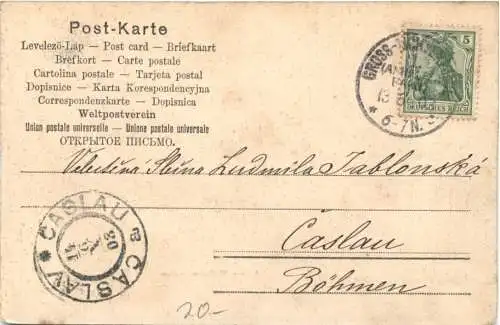 Post-Karte
Levelező-Lap — Post card — Briefkaart
Brefkort — Carte postale
Cartolina postale — Tarjeta postal
Dopisnice — Karta Korespondencyjna
Correspondenzkarte — Dopisnica
Weltpostverein
Union postale universelle — Unione postale universale
ОТКРЫТОЕ ПИСЬМО.
5
DEUTSCHES REICH
GROSS-
* 6-7N.
Velectěná Slečna Ludmila Jablonská
Caslau
Böhmen
CASLAU
* ČASLAV
20.-